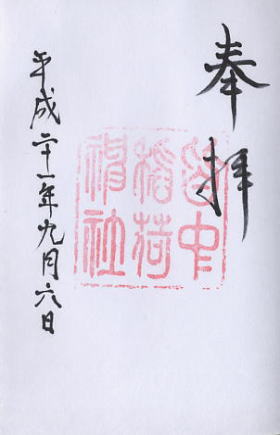 奉拝
皆中
稲荷
神社
平成二十一年九月六日